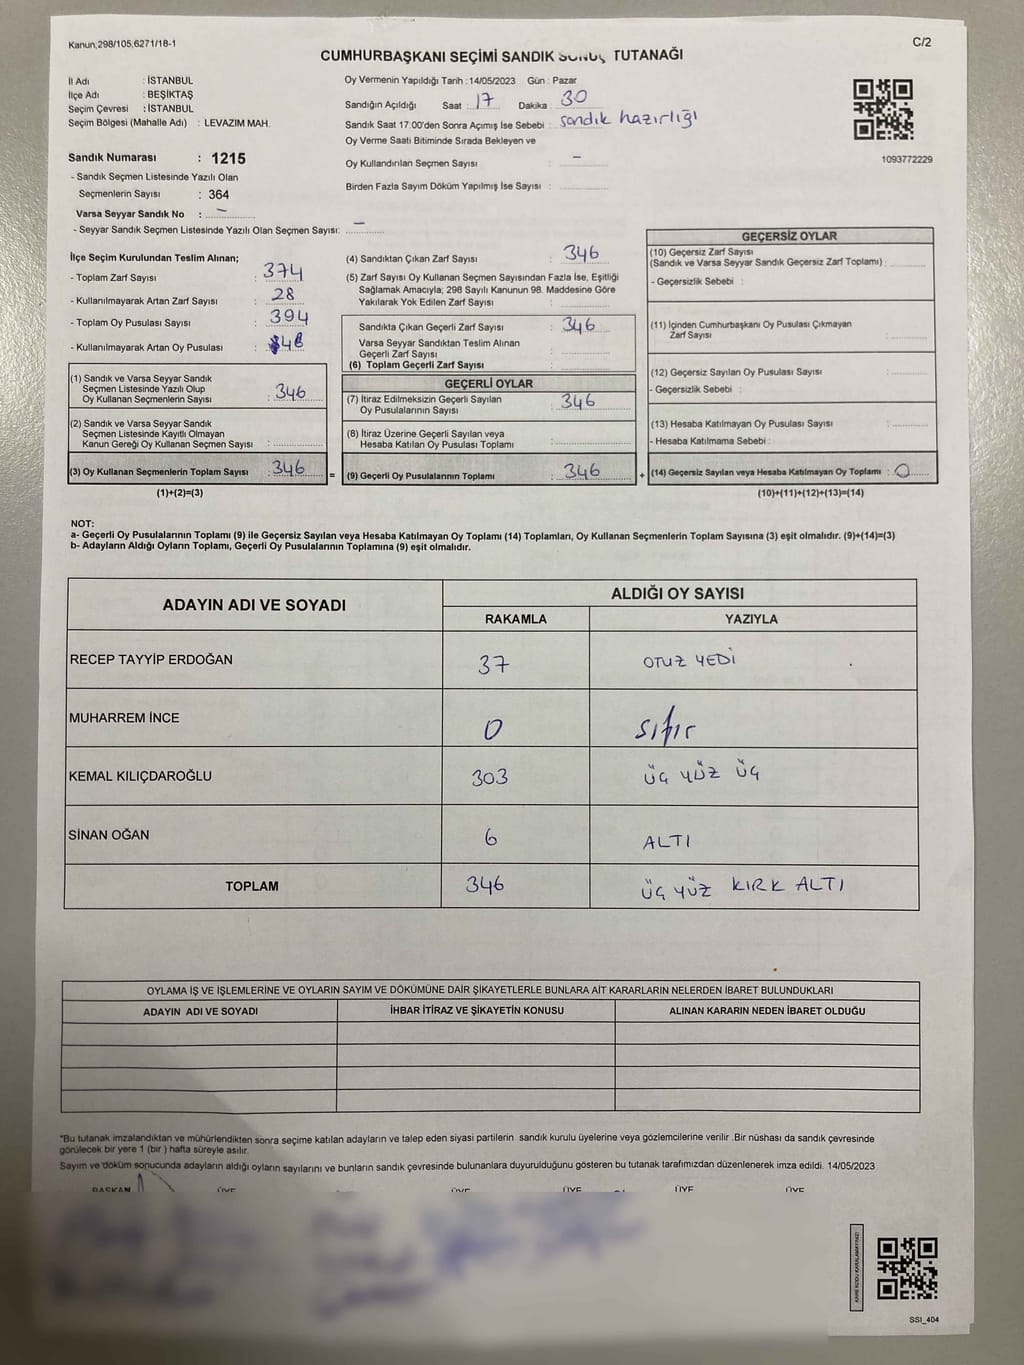 Kanun,298/105,6271/18-1
C/2
CUMHURBAŞKANI SEÇİMİ SANDIK SONUÇ TUTANAĞI
İl Adı : İSTANBUL
İlçe Adı : BEŞİKTAŞ
Seçim Çevresi : İSTANBUL
Seçim Bölgesi (Mahalle Adı) : LEVAZIM MAH.
Oy Vermenin Yapıldığı Tarih :14/05/2023 Gün : Pazar
Sandığın Açıldığı Saat : 17 Dakika : 30
Sandık Saat 17:00'den Sonra Açımış İse Sebebi : sandık hazırlığı
Oy Verme Saati Bitiminde Sırada Bekleyen ve
Oy Kullandırılan Seçmen Sayısı : –
Birden Fazla Sayım Döküm Yapılmış İse Sayısı :
1093772229
Sandık Numarası : 1215
- Sandık Seçmen Listesinde Yazılı Olan
Seçmenlerin Sayısı : 364
Varsa Seyyar Sandık No : –
- Seyyar Sandık Seçmen Listesinde Yazılı Olan Seçmen Sayısı: –
İlçe Seçim Kurulundan Teslim Alınan;
- Toplam Zarf Sayısı : 374
- Kullanılmayarak Artan Zarf Sayısı : 28
- Toplam Oy Pusulası Sayısı : 394
- Kullanılmayarak Artan Oy Pusulası : 48
(1) Sandık ve Varsa Seyyar Sandık
Seçmen Listesinde Yazılı Olup
Oy Kullanan Seçmenlerin Sayısı : 346
(2) Sandık ve Varsa Seyyar Sandık
Seçmen Listesinde Kayıtlı Olmayan
Kanun Gereği Oy Kullanan Seçmen Sayısı :
(3) Oy Kullanan Seçmenlerin Toplam Sayısı : 346 =
(1)+(2)=(3)
(4) Sandıktan Çıkan Zarf Sayısı : 346
(5) Zarf Sayısı Oy Kullanan Seçmen Sayısından Fazla İse, Eşitliği
Sağlamak Amacıyla; 298 Sayılı Kanunun 98. Maddesine Göre
Yakılarak Yok Edilen Zarf Sayısı :
Sandıkta Çıkan Geçerli Zarf Sayısı : 346
Varsa Seyyar Sandıktan Teslim Alınan
Geçerli Zarf Sayısı :
(6) Toplam Geçerli Zarf Sayısı :
GEÇERLİ OYLAR
(7) İtiraz Edilmeksizin Geçerli Sayılan
Oy Pusulalarının Sayısı : 346
(8) İtiraz Üzerine Geçerli Sayılan veya
Hesaba Katılan Oy Pusulası Toplamı :
(9) Geçerli Oy Pusulalarının Toplamı : 346 +
GEÇERSİZ OYLAR
(10) Geçersiz Zarf Sayısı
(Sandık ve Varsa Seyyar Sandık Geçersiz Zarf Toplamı) :
- Geçersizlik Sebebi :
(11) İçinden Cumhurbaşkanı Oy Pusulası Çıkmayan
Zarf Sayısı :
(12) Geçersiz Sayılan Oy Pusulası Sayısı :
- Geçersizlik Sebebi :
(13) Hesaba Katılmayan Oy Pusulası Sayısı :
- Hesaba Katılmama Sebebi :
(14) Geçersiz Sayılan veya Hesaba Katılmayan Oy Toplamı : 0
(10)+(11)+(12)+(13)=(14)
NOT:
a- Geçerli Oy Pusulalarının Toplamı (9) ile Geçersiz Sayılan veya Hesaba Katılmayan Oy Toplamı (14) Toplamları, Oy Kullanan Seçmenlerin Toplam Sayısına (3) eşit olmalıdır. (9)+(14)=(3)
b- Adayların Aldığı Oyların Toplamı, Geçerli Oy Pusulalarının Toplamına (9) eşit olmalıdır.
ADAYIN ADI VE SOYADI
ALDIĞI OY SAYISI
RAKAMLA YAZIYLA
RECEP TAYYİP ERDOĞAN 37 OTUZ YEDİ
MUHARREM İNCE 0 sıfır
KEMAL KILIÇDAROĞLU 303 ÜÇ YÜZ ÜÇ
SİNAN OĞAN 6 ALTI
TOPLAM 346 ÜÇ YÜZ KIRK ALTI
OYLAMA İŞ VE İŞLEMLERİNE VE OYLARIN SAYIM VE DÖKÜMÜNE DAİR ŞİKAYETLERLE BUNLARA AİT KARARLARIN NELERDEN İBARET BULUNDUKLARI
ADAYIN ADI VE SOYADI İHBAR İTİRAZ VE ŞİKAYETİN KONUSU ALINAN KARARIN NEDEN İBARET OLDUĞU
*Bu tutanak imzalandıktan ve mühürlendikten sonra seçime katılan adayların ve talep eden siyasi partilerin sandık kurulu üyelerine veya gözlemcilerine verilir .Bir nüshası da sandık çevresinde
görülecek bir yere 1 (bir ) hafta süreyle asılır.
Sayım ve döküm sonucunda adayların aldığı oyların sayılarını ve bunların sandık çevresinde bulunanlara duyurulduğunu gösteren bu tutanak tarafımızdan düzenlenerek imza edildi. 14/05/2023
BAŞKAN ÜYE ÜYE ÜYE ÜYE ÜYE
KARE KODU KARALAMAYINIZ!
SSI_404